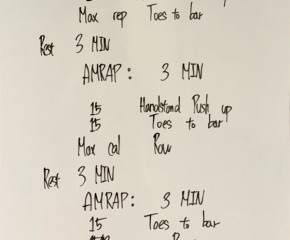 Max rep Toes to bar
Rest 3 MIN
AMRAP: 3 MIN
15 Handstand Push up
15 Toes to bar
Max cal Row
Rest 3 MIN
AMRAP: 3 MIN
15 Toes to bar